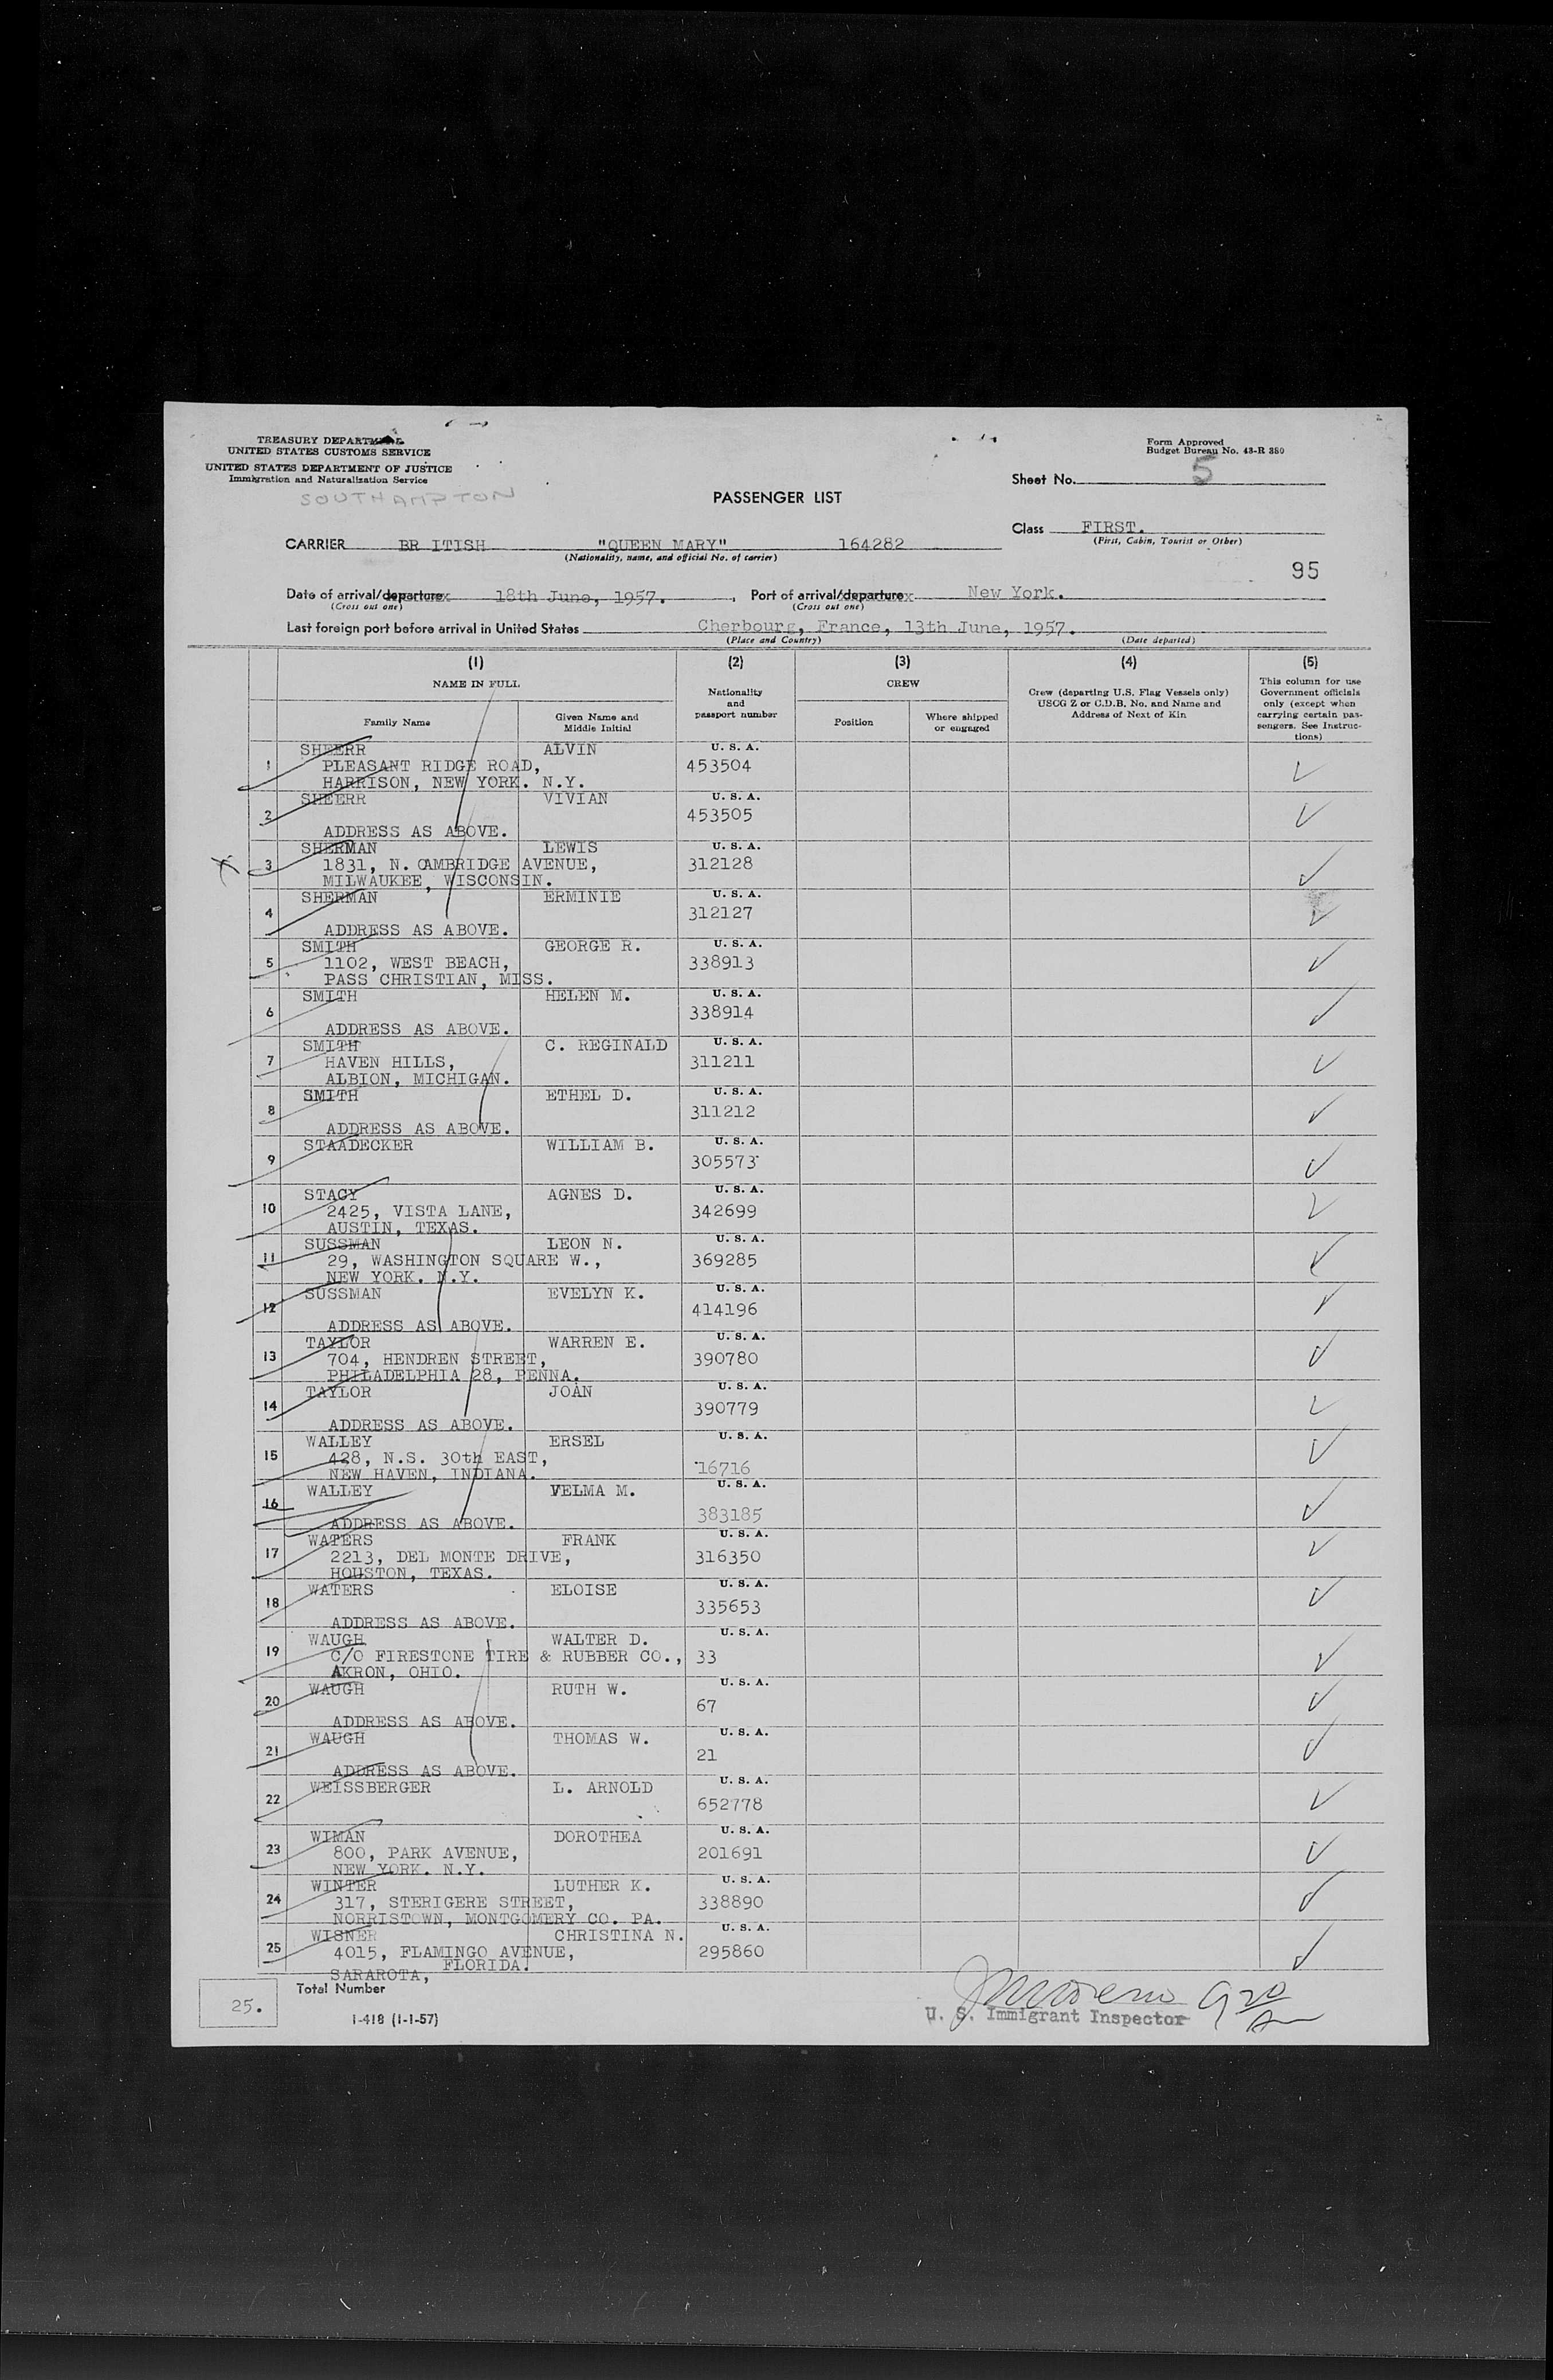 TREASURY DEPARTMENT
UNITED STATES CUSTOMS SERVICE
UNITED STATES DEPARTMENT OF JUSTICE
Immigration and Naturalization Service
SOUTHAMPTON
Form Approved
Budget Bureau No. 43-R 380
Sheet No. 5
PASSENGER LIST
Class FIRST.
(First, Cabin, Tourist or Other)
CARRIER BR ITISH "QUEEN MARY" 164282
(Nationality, name, and official No. of carrier)
95
Date of arrival/departure 18th June, 1957. Port of arrival/departure New York.
(Cross out one) (Cross out one)
Last foreign port before arrival in United States Cherbourg, France, 13th June, 1957.
(Place and Country) (Date departed)
(1) (2) (3) (4) (5)
NAME IN FULL
Family Name
Given Name and Middle Initial
Nationality and passport number
CREW
Position
Where shipped or engaged
Crew (departing U.S. Flag Vessels only) USCG Z or C.D.B. No. and Name and Address of Next of Kin
This column for use Government officials only (except when carrying certain passengers. See Instructions)
1 SHEERR ALVIN U. S. A.
PLEASANT RIDGE ROAD, 453504
HARRISON, NEW YORK. N.Y.
2 SHEERR VIVIAN U. S. A.
453505
ADDRESS AS ABOVE.
3 SHERMAN LEWIS U. S. A.
1831, N. CAMBRIDGE AVENUE, 312128
MILWAUKEE, WISCONSIN.
4 SHERMAN ERMINIE U. S. A.
312127
ADDRESS AS ABOVE.
5 SMITH GEORGE R. U. S. A.
1102, WEST BEACH, 338913
PASS CHRISTIAN, MISS.
6 SMITH HELEN M. U. S. A.
338914
ADDRESS AS ABOVE.
7 SMITH C. REGINALD U. S. A.
HAVEN HILLS, 311211
ALBION, MICHIGAN.
8 SMITH ETHEL D. U. S. A.
311212
ADDRESS AS ABOVE.
9 STAADECKER WILLIAM B. U. S. A.
305573
10 STACY AGNES D. U. S. A.
2425, VISTA LANE, 342699
AUSTIN, TEXAS.
11 SUSSMAN LEON N. U. S. A.
29, WASHINGTON SQUARE W., 369285
NEW YORK. N.Y.
12 SUSSMAN EVELYN K. U. S. A.
414196
ADDRESS AS ABOVE.
13 TAYLOR WARREN E. U. S. A.
704, HENDREN STREET, 390780
PHILADELPHIA 28, PENNA.
14 TAYLOR JOAN U. S. A.
390779
ADDRESS AS ABOVE.
15 WALLEY ERSEL U. S. A.
428, N.S. 30th EAST, 16716
NEW HAVEN, INDIANA.
16 WALLEY VELMA M. U. S. A.
383185
ADDRESS AS ABOVE.
17 WATERS FRANK U. S. A.
2213, DEL MONTE DRIVE, 316350
HOUSTON, TEXAS.
18 WATERS ELOISE U. S. A.
335653
ADDRESS AS ABOVE.
19 WAUGH WALTER D. U. S. A.
C/O FIRESTONE TIRE & RUBBER CO., 33
AKRON, OHIO.
20 WAUGH RUTH W. U. S. A.
67
ADDRESS AS ABOVE.
21 WAUGH THOMAS W. U. S. A.
21
ADDRESS AS ABOVE.
22 WEISSBERGER L. ARNOLD U. S. A.
652778
23 WIMAN DOROTHEA U. S. A.
800, PARK AVENUE, 201691
NEW YORK. N.Y.
24 WINTER LUTHER K. U. S. A.
317, STERIGERE STREET, 338890
NORRISTOWN, MONTGOMERY CO. PA.
25 WISNER CHRISTINA N. U. S. A.
4015, FLAMINGO AVENUE, 295860
SARAROTA, FLORIDA.
Total Number
25.
I-418 (1-1-57)
U. S. Immigrant Inspector